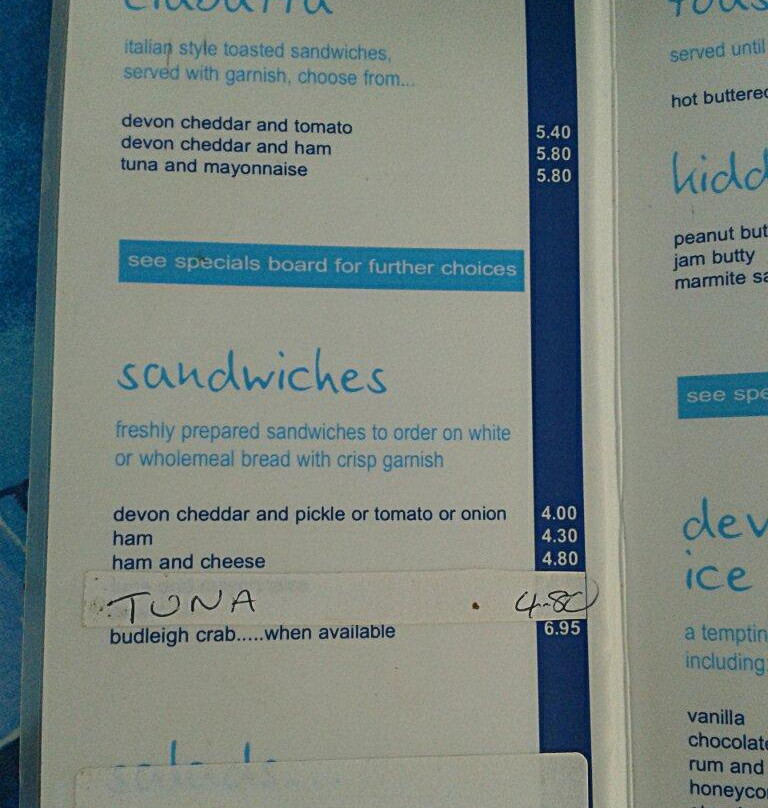 italian style toasted sandwiches,
served with garnish, choose from...
devon cheddar and tomato 5.40
devon cheddar and ham 5.80
tuna and mayonnaise 5.80
see specials board for further choices
sandwiches
freshly prepared sandwiches to order on white
or wholemeal bread with crisp garnish
devon cheddar and pickle or tomato or onion 4.00
ham 4.30
ham and cheese 4.80
TUNA 4.80
budleigh crab.....when available 6.95
served until
hot buttered
peanut but
jam butty
marmite sa
see spe
dev
ice
a temptin
including
vanilla
chocolate
rum and
honeyco